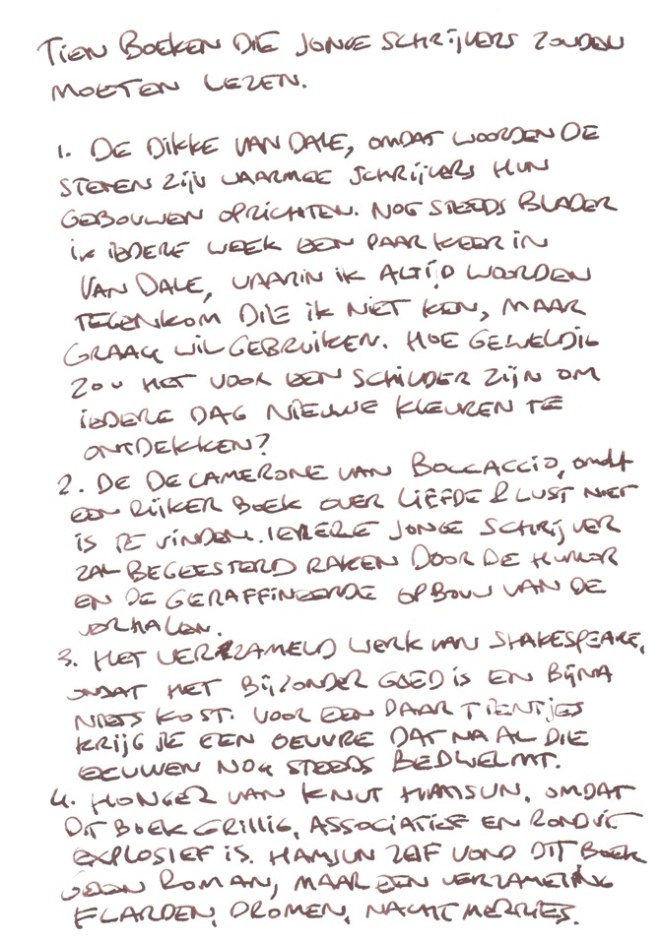 Tien boeken die jonge schrijvers zouden
moeten lezen.
1. De dikke Van Dale, omdat woorden de
stenen zijn waarmee schrijvers hun
gebouwen oprichten. Nog steeds blader
ik iedere week een paar keer in
Van Dale, waarin ik altijd woorden
tegenkom die ik niet ken, maar
graag wil gebruiken. Hoe geweldig
zou het voor een schilder zijn om
iedere dag nieuwe kleuren te
ontdekken?
2. De Decamerone van Boccaccio, omdat
een rijker boek over liefde & lust niet
is te vinden. Iedere jonge schrijver
zal begeesterd raken door de humor
en de geraffineerde opbouw van de
verhalen.
3. Het verzameld werk van Shakespeare,
omdat het bijzonder goed is en bijna
niets kost. Voor een paar tientjes
krijg je een oeuvre dat na al die
eeuwen nog steeds bedwelmt.
4. Honger van Knut Hamsun, omdat
dit boek grillig, associatief en ronduit
explosief is. Hamsun zelf vond dit boek
geen roman, maar een verzameling
flarden, dromen, nachtmerries.